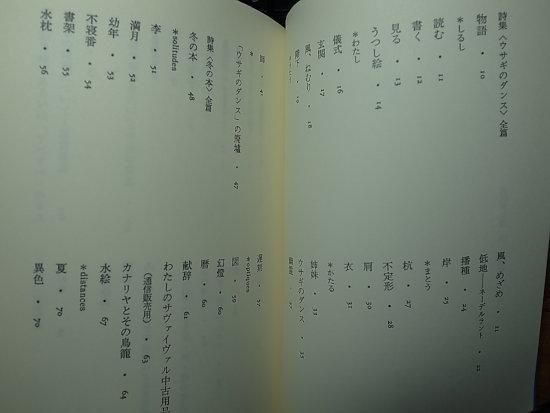 詩集〈ウサギのダンス〉全篇
物語 · 10
*しるし
読む · 11
書く · 12
見る · 13
うつし絵 · 14
*わたし
儀式 · 16
玄関 · 17
風、ねむり · 18
風、めざめ · 21
低地—ネーデルラント · 22
播種 · 24
岸 · 25
*まとう
杭 · 27
不定形 · 28
肩 · 30
衣 · 31
*かたる
姉妹 · 32
ウサギのダンス · 35
「ウサギのダンス」の廃墟 · 47
詩集〈冬の本〉全篇
冬の本 · 48
*solitudes
李 · 51
満月 · 52
幼年 · 53
不寝番 · 54
書架 · 55
水枕 · 56
遅刻 · 57
*optiques
図 · 59
幻燈 · 60
暦 · 60
献辞 · 61
わたしのサヴァイヴァル中古用品
(通信販売用) · 63
カナリヤとその鳥籠 · 64
水絵 · 67
*distances
夏 · 70
異色 · 70